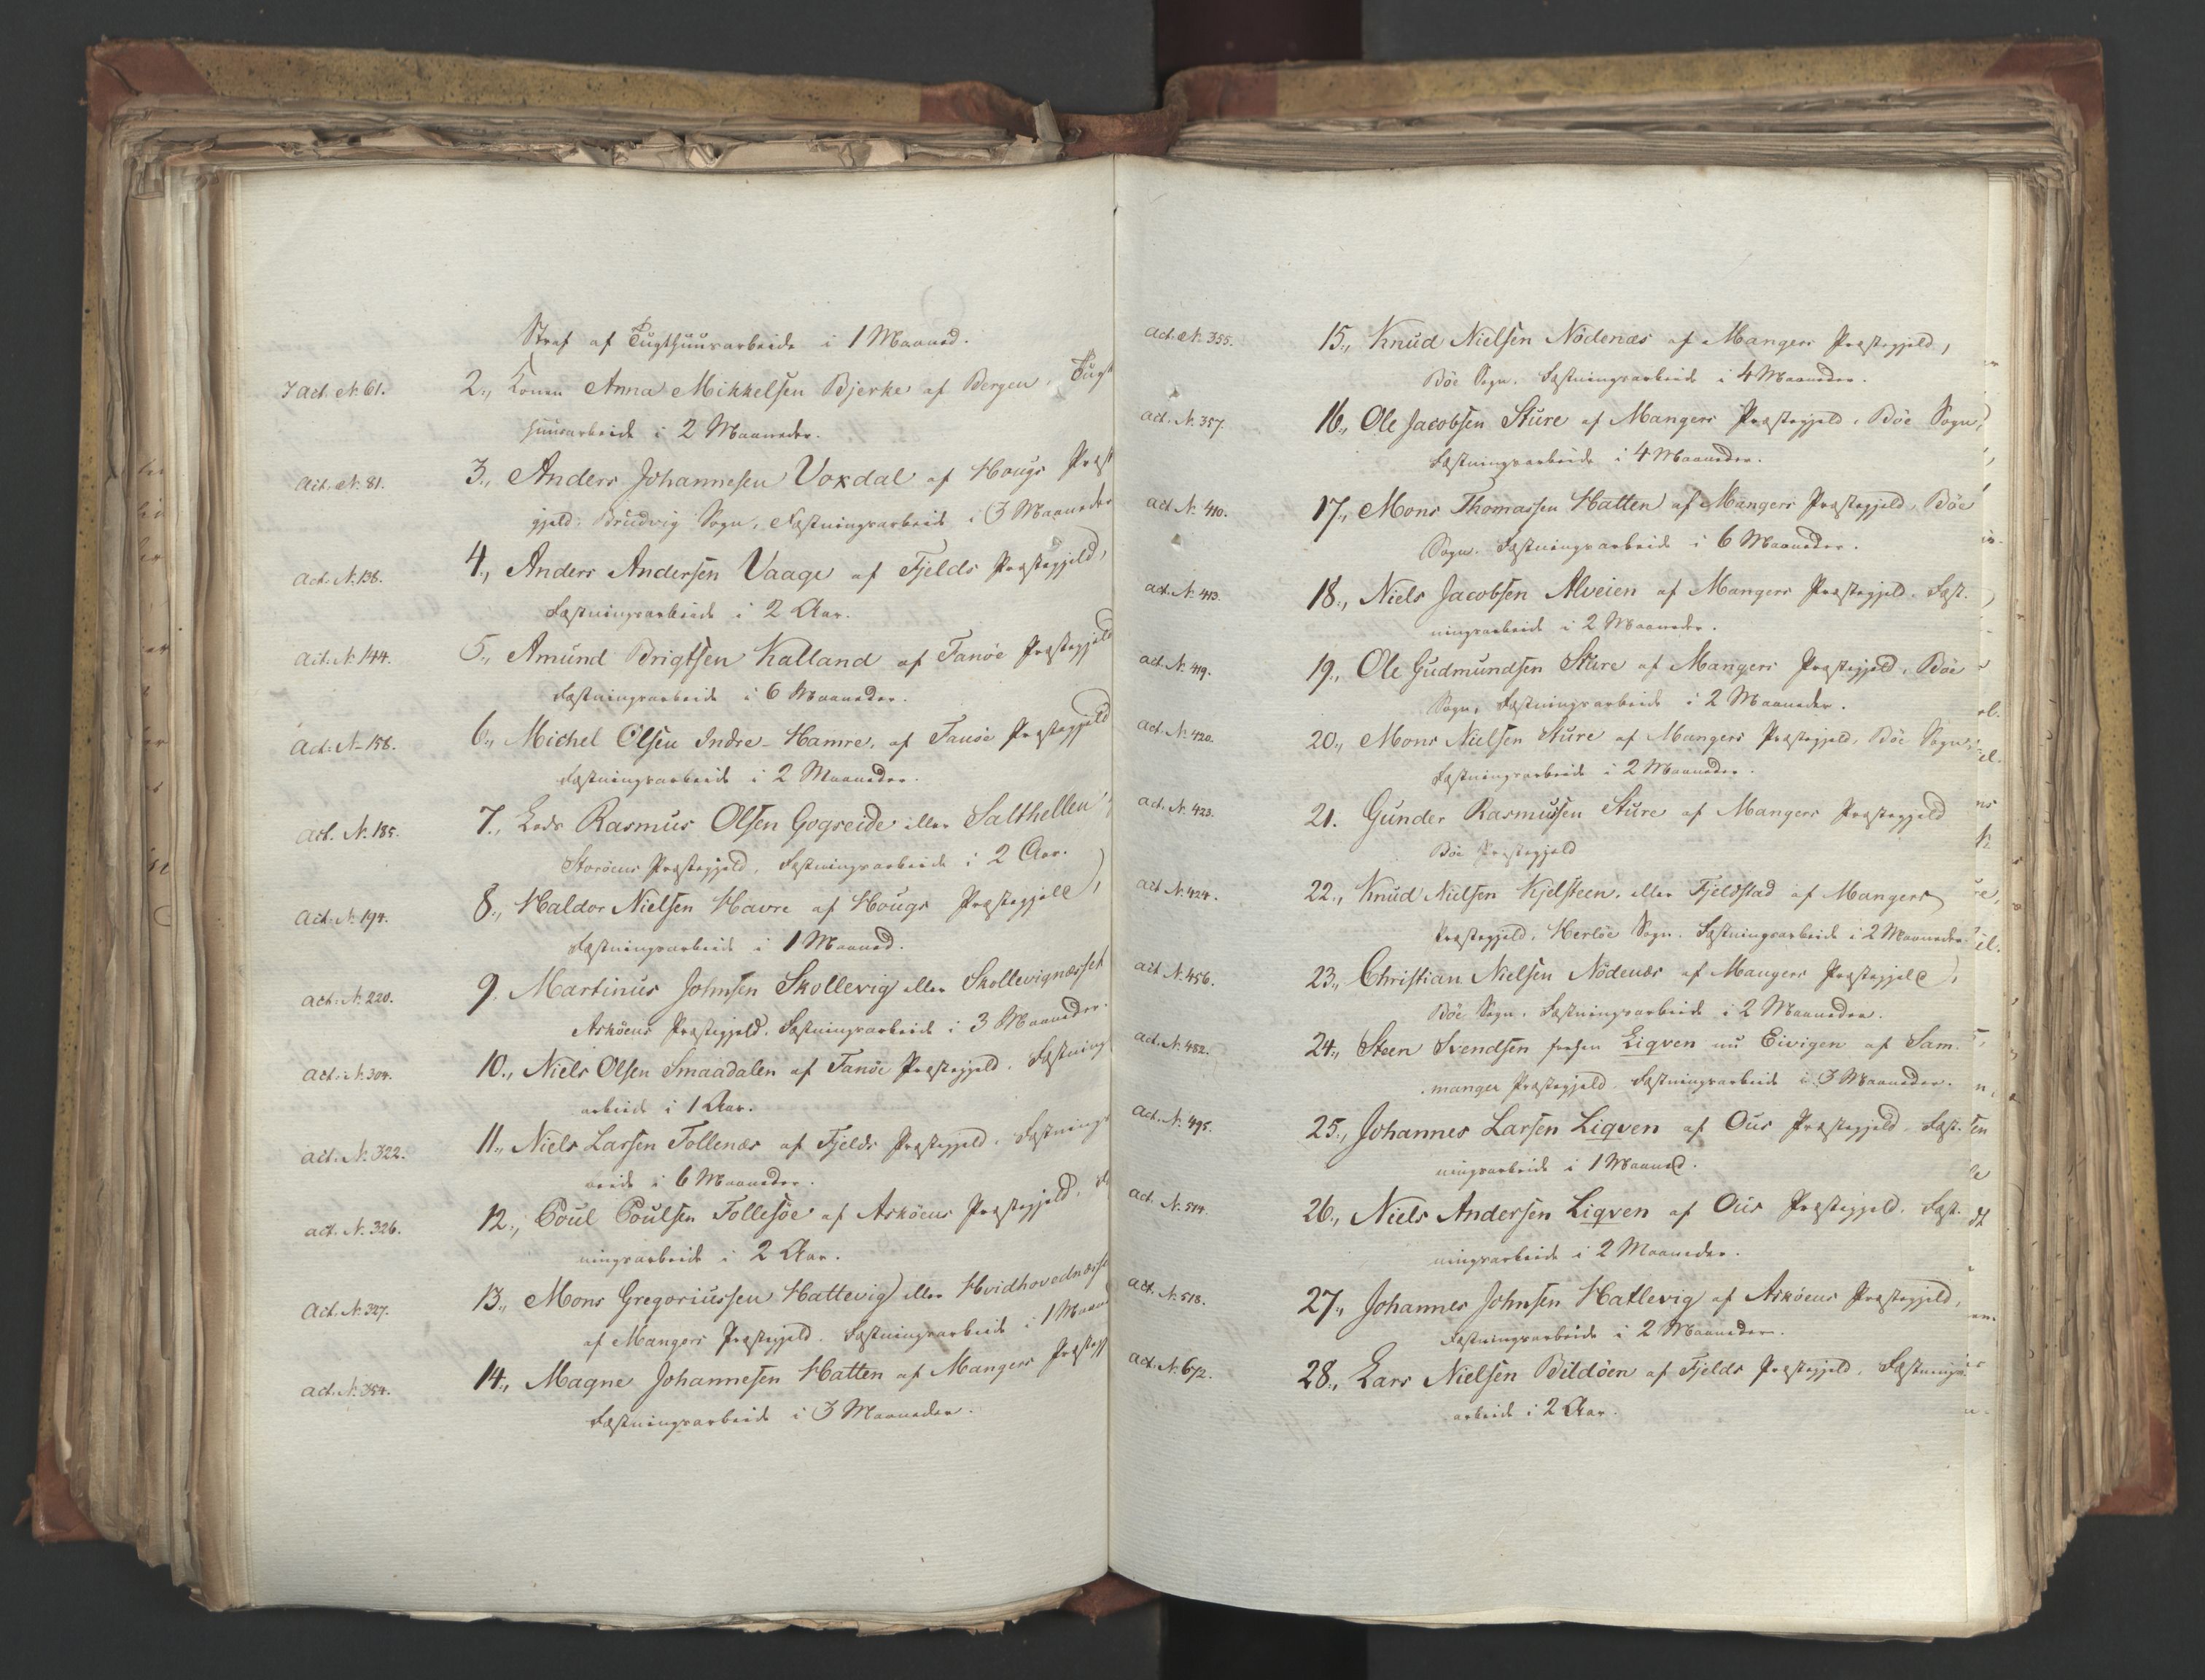 Straf af Tugthuusarbeide i 1 Maaned.
I Act. N. 61. 2., Konen Anna Mikkelsen Bjerke af Bergen, Tugt
huusarbeide i 2 Maaneder.
Act. N. 81. 3., Anders Johannesen Voxdal af Hougs Præst
gjeld, Brudvig Sogn, Fæstningsarbeide i 3 Maaneder
Act. N. 138. 4., Anders Andersen Vaage af Fjelds Præstegjeld,
Fæstningsarbeide i 2 Aar.
Act. N. 144. 5., Amund Brigtsen Kalland af Fanöe Præstegjeld
Fæstningsarbeide i 6 Maaneder.
Act. N. 158. 6., Michel Olsen Indre-Hamre, af Fanöe Præstegjeld
Fæstningsarbeide i 2 Maaneder.
Act. N. 185. 7., Lods Rasmus Olsen Gogseide eller Salthellen
Storöens Præstegjeld, Fæstningsarbeide i 2 Aar.
Act. N. 194. 8., Haldor Nielsen Havre af Hougs Præstegjeld,
Fæstningsarbeide i 1 Maaned.
Act. N. 220. 9. Martinus Johnsen Skollevig eller Skollevignæsset
Asköens Præstegjeld. Fæstningsarbeide i 3 Maaneder.
Act. N. 304. 10., Niels Olsen Smaadalen af Fanöe Præstegjeld. Fæstning
arbeide i 1 Aar.
Act. N. 322. 11., Niels Larsen Tollenæs af Fjelds Præstegjeld. Fæstnings
beide i 6 Maaneder.
Act. N. 326. 12., Poul Poulsen Follesöe af Asköens Præstegjeld.
ningsarbeide i 2 Aar.
Act. N. 327. 13., Mons Gregoriussen Hattevig eller Hvidhovednæsse
af Mangers Præstegjeld. Fæstningsarbeide i 1 Maaned
Act. N. 354. 14., Magne Johannesen Hatten af Mangers Præstegj
Fæstningsarbeide i 3 Maaneder.
Act. N. 355. 15., Knud Nielsen Nödenæs af Mangers Præstegjeld,
Böe Sogn. Fæstningsarbeide i 4 Maaneder.
Act. N. 357. 16., Ole Jacobsen Sture af Mangers Præstegjeld, Böe Sogn,
Fæstningsarbeide i 4 Maaneder.
Act. N. 410. 17., Mons Thomassen Hatten af Mangers Præstegjeld, Böe
Sogn. Fæstningsarbeide i 6 Maaneder.
Act. N. 413. 18., Niels Jacobsen Alveien af Mangers Præstegjeld. Fæst-
ningsarbeide i 2 Maaneder.
Act. N. 419. 19., Ole Gudmundsen Sture af Mangers Præstegjeld, Böe
Sogn, Fæstningsarbeide i 2 Maaneder.
Act. N. 420. 20., Mons Nielsen Sture af Mangers Præstegjeld, Böe Sogn,
Fæstningsarbeide i 2 Maaneder.
Act. N. 423. 21. Gunder Rasmussen Sture af Mangers Præstegjeld
Böe Præstegjeld
Act. N. 424. 22., Knud Nielsen Kjelsteen, eller Fjeldstad af Mangers
Præstegjeld, Herlöe Sogn. Fæstningsarbeide i 2 Maaneder.
Act. N. 456. 23., Christian Nielsen Nödenæs af Mangers Præstegjeld,
Böe Sogn. Fæstningsarbeide i 2 Maaneder.
Act. N. 482. 24., Steen Svendsen forhen Liqven nu Eivigen af Sam-
manger Præstegjeld. Fæstningsarbeide i 3 Maaneder.
Act. N. 495. 25., Johannes Larsen Liqven af Ous Præstegjeld. Fæst-
ningsarbeide i 1 Maaned.
Act. N. 514. 26., Niels Andersen Liqven af Ous Præstegjeld. Fæst-
ningsarbeide i 2 Maaneder.
Act. N. 518. 27., Johannes Johnsen Hatlevig af Asköens Præstegjeld,
Fæstningsarbeide i 2 Maaneder.
Act. N. 672. 28., Lars Nielsen Bildöen af Fjelds Præstegjeld, Fæstnings-
arbeide i 2 Aar.